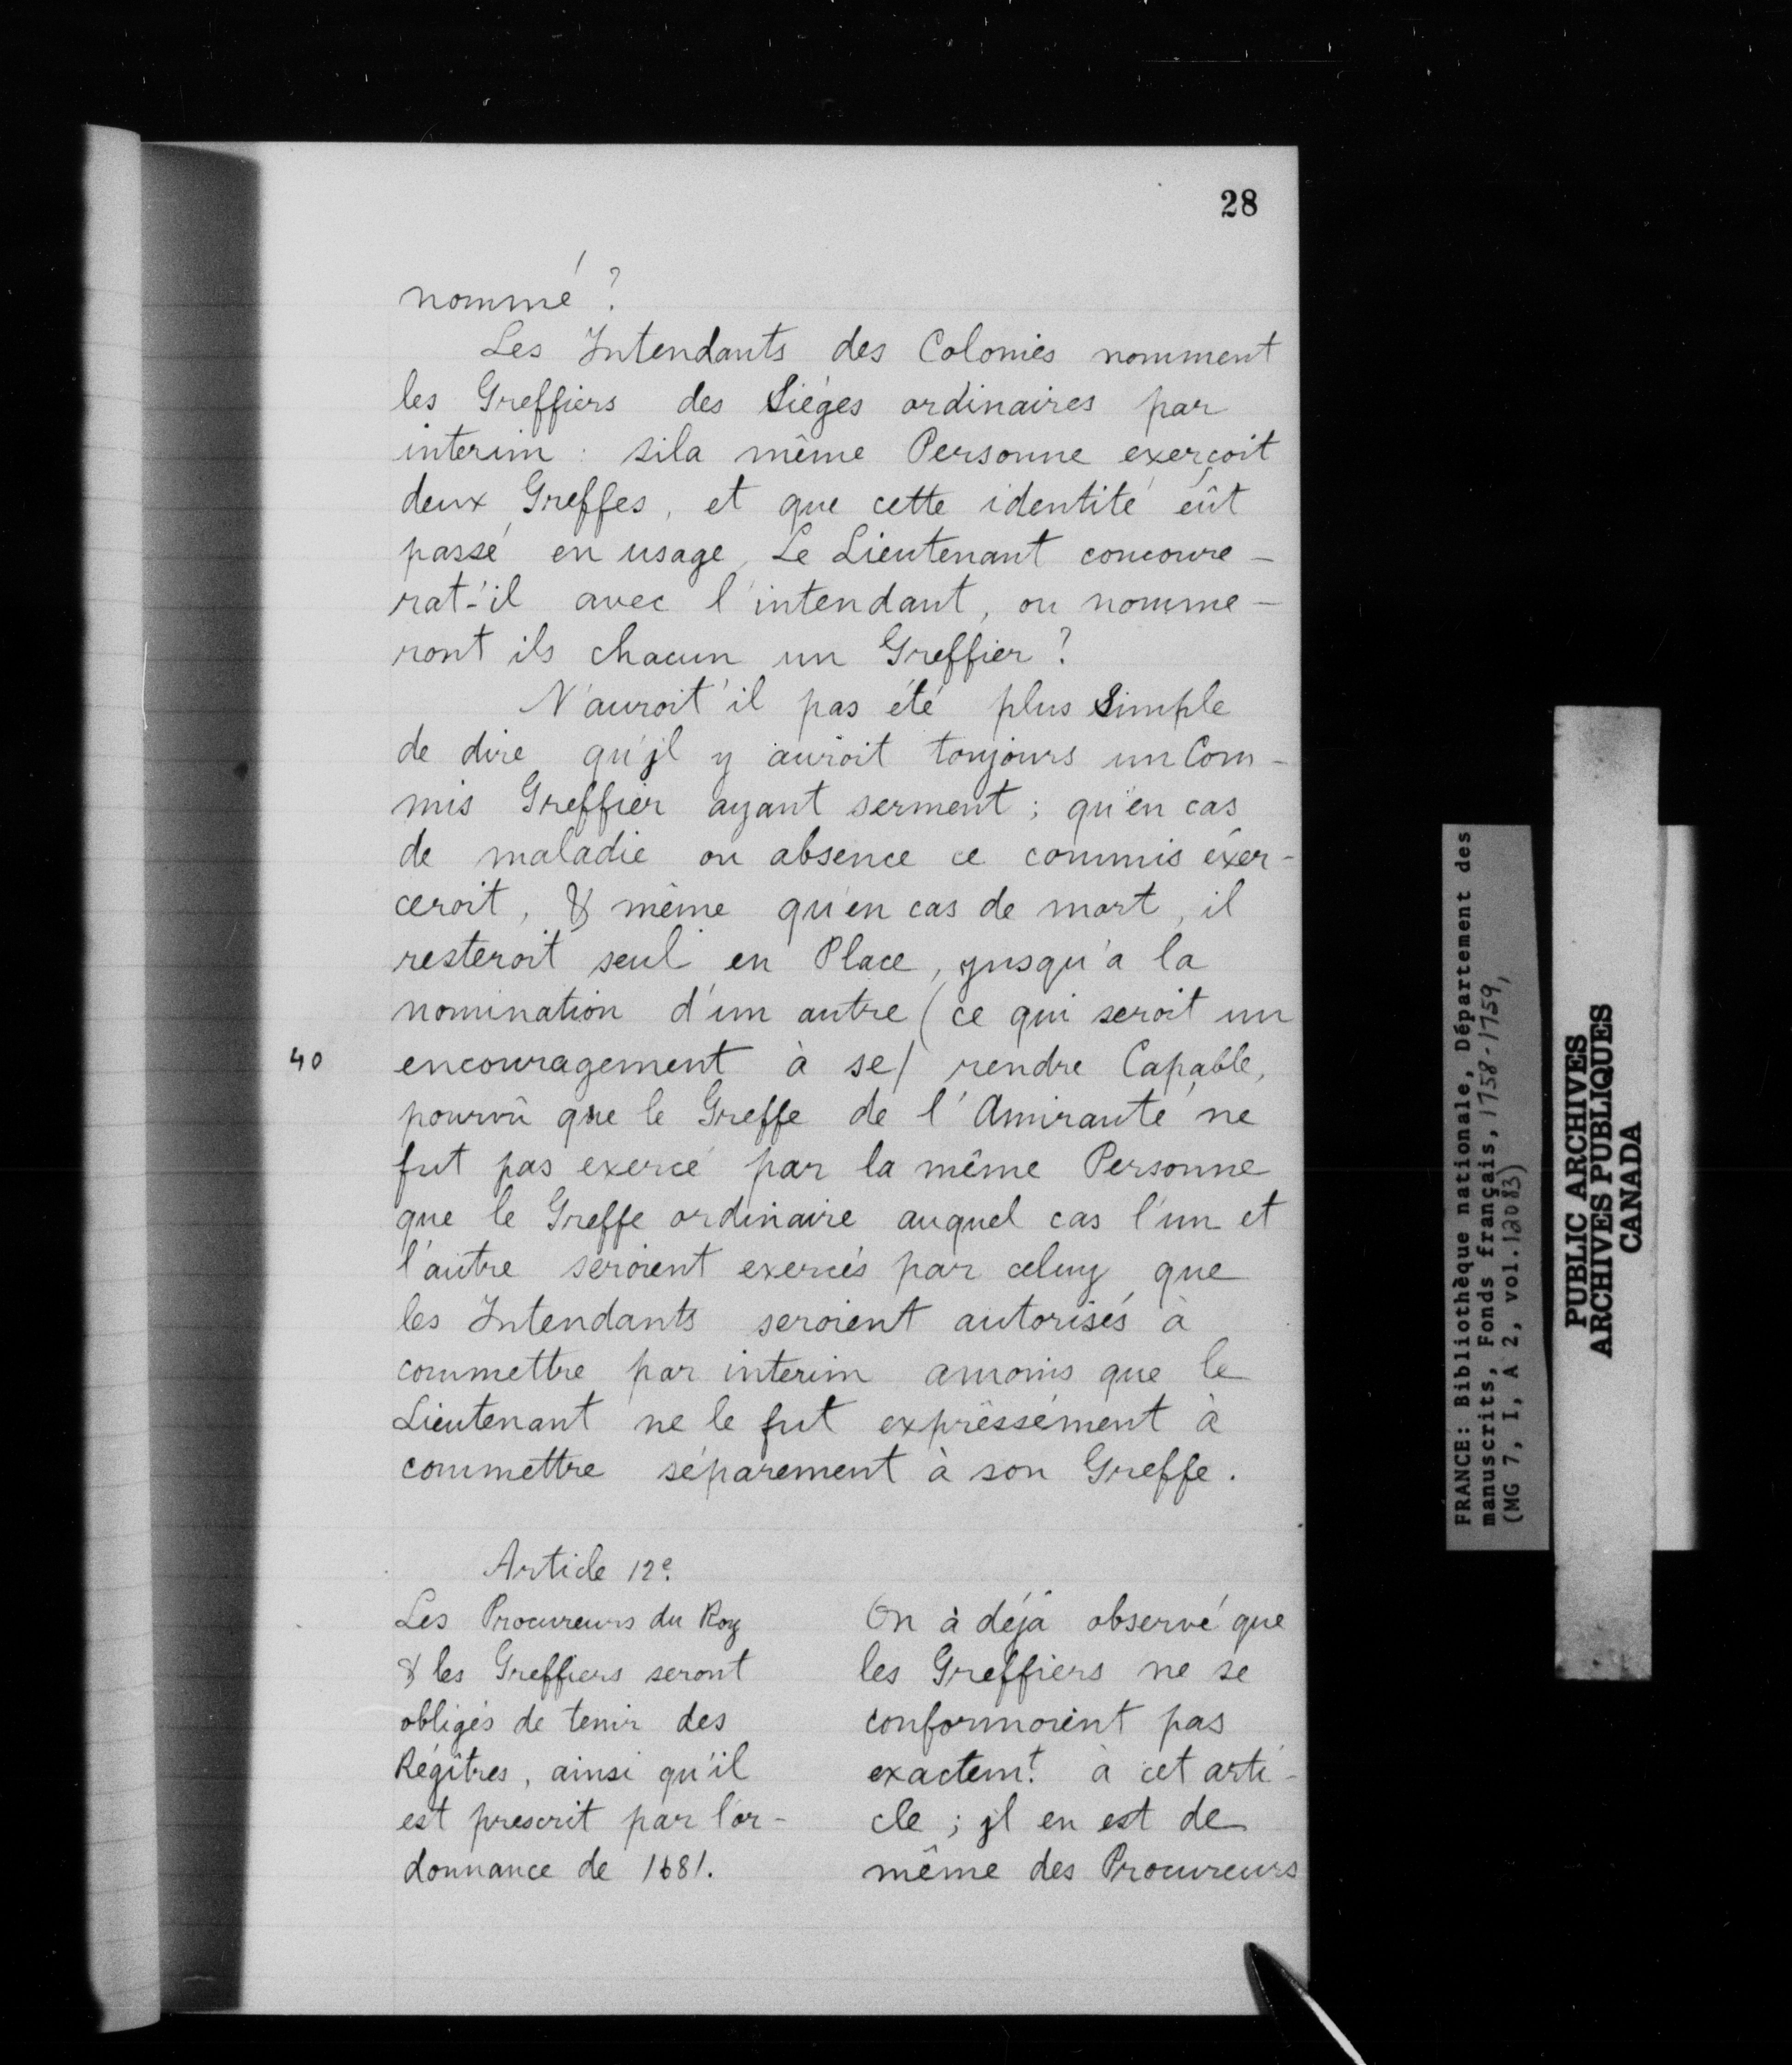 28
nommé ?
Les Intendants des Colonies nomment
les Greffiers des Siéges ordinaires par
interim : sila même Personne exerçoit
deux Greffes, et que cette identité eût
passé en usage, Le Lieutenant concoure-
rat-'il avec l'intendant, ou nomme-
ront ils chacun un Greffier ?
N'auroit'il pas été plus Simple
de dire qu'jl y auroit toujours un Com-
mis Greffier ayant serment ; qu'en cas
de maladie ou absence ce commis éxer-
ceroit, & même qu'en cas de mort, il
resteroit seul en Place, jusqu'a la
nomination d'un autre (ce qui seroit un
40 encouragement à se/ rendre Capable,
pourvû que le Greffe de l'Amirauté ne
fut pas exercé par la même Personne
que le Greffe ordinaire auquel cas l'un et
l'autre seroient exercés par celuy que
les Intendants seroient autorisés à
commettre par interim amoins que le
Lieutenant ne le fut expressément à
commettre séparement à son Greffe.
Article 12e.
Les Procureurs du Roy
& les Greffiers seront
obligés de tenir des
Régîtres, ainsi qu'il
est prescrit par l'or-
donnance de 1681.
On à déjà observé que
les Greffiers ne se
conformoient pas
exactemt. à cet arti-
cle ; jl en est de
même des Procureurs
FRANCE: Bibliothèque nationale, Département des
manuscrits, Fonds français, 1758-1759,
(MG 7, I, A 2, vol. 12083)
PUBLIC ARCHIVES
ARCHIVES PUBLIQUES
CANADA